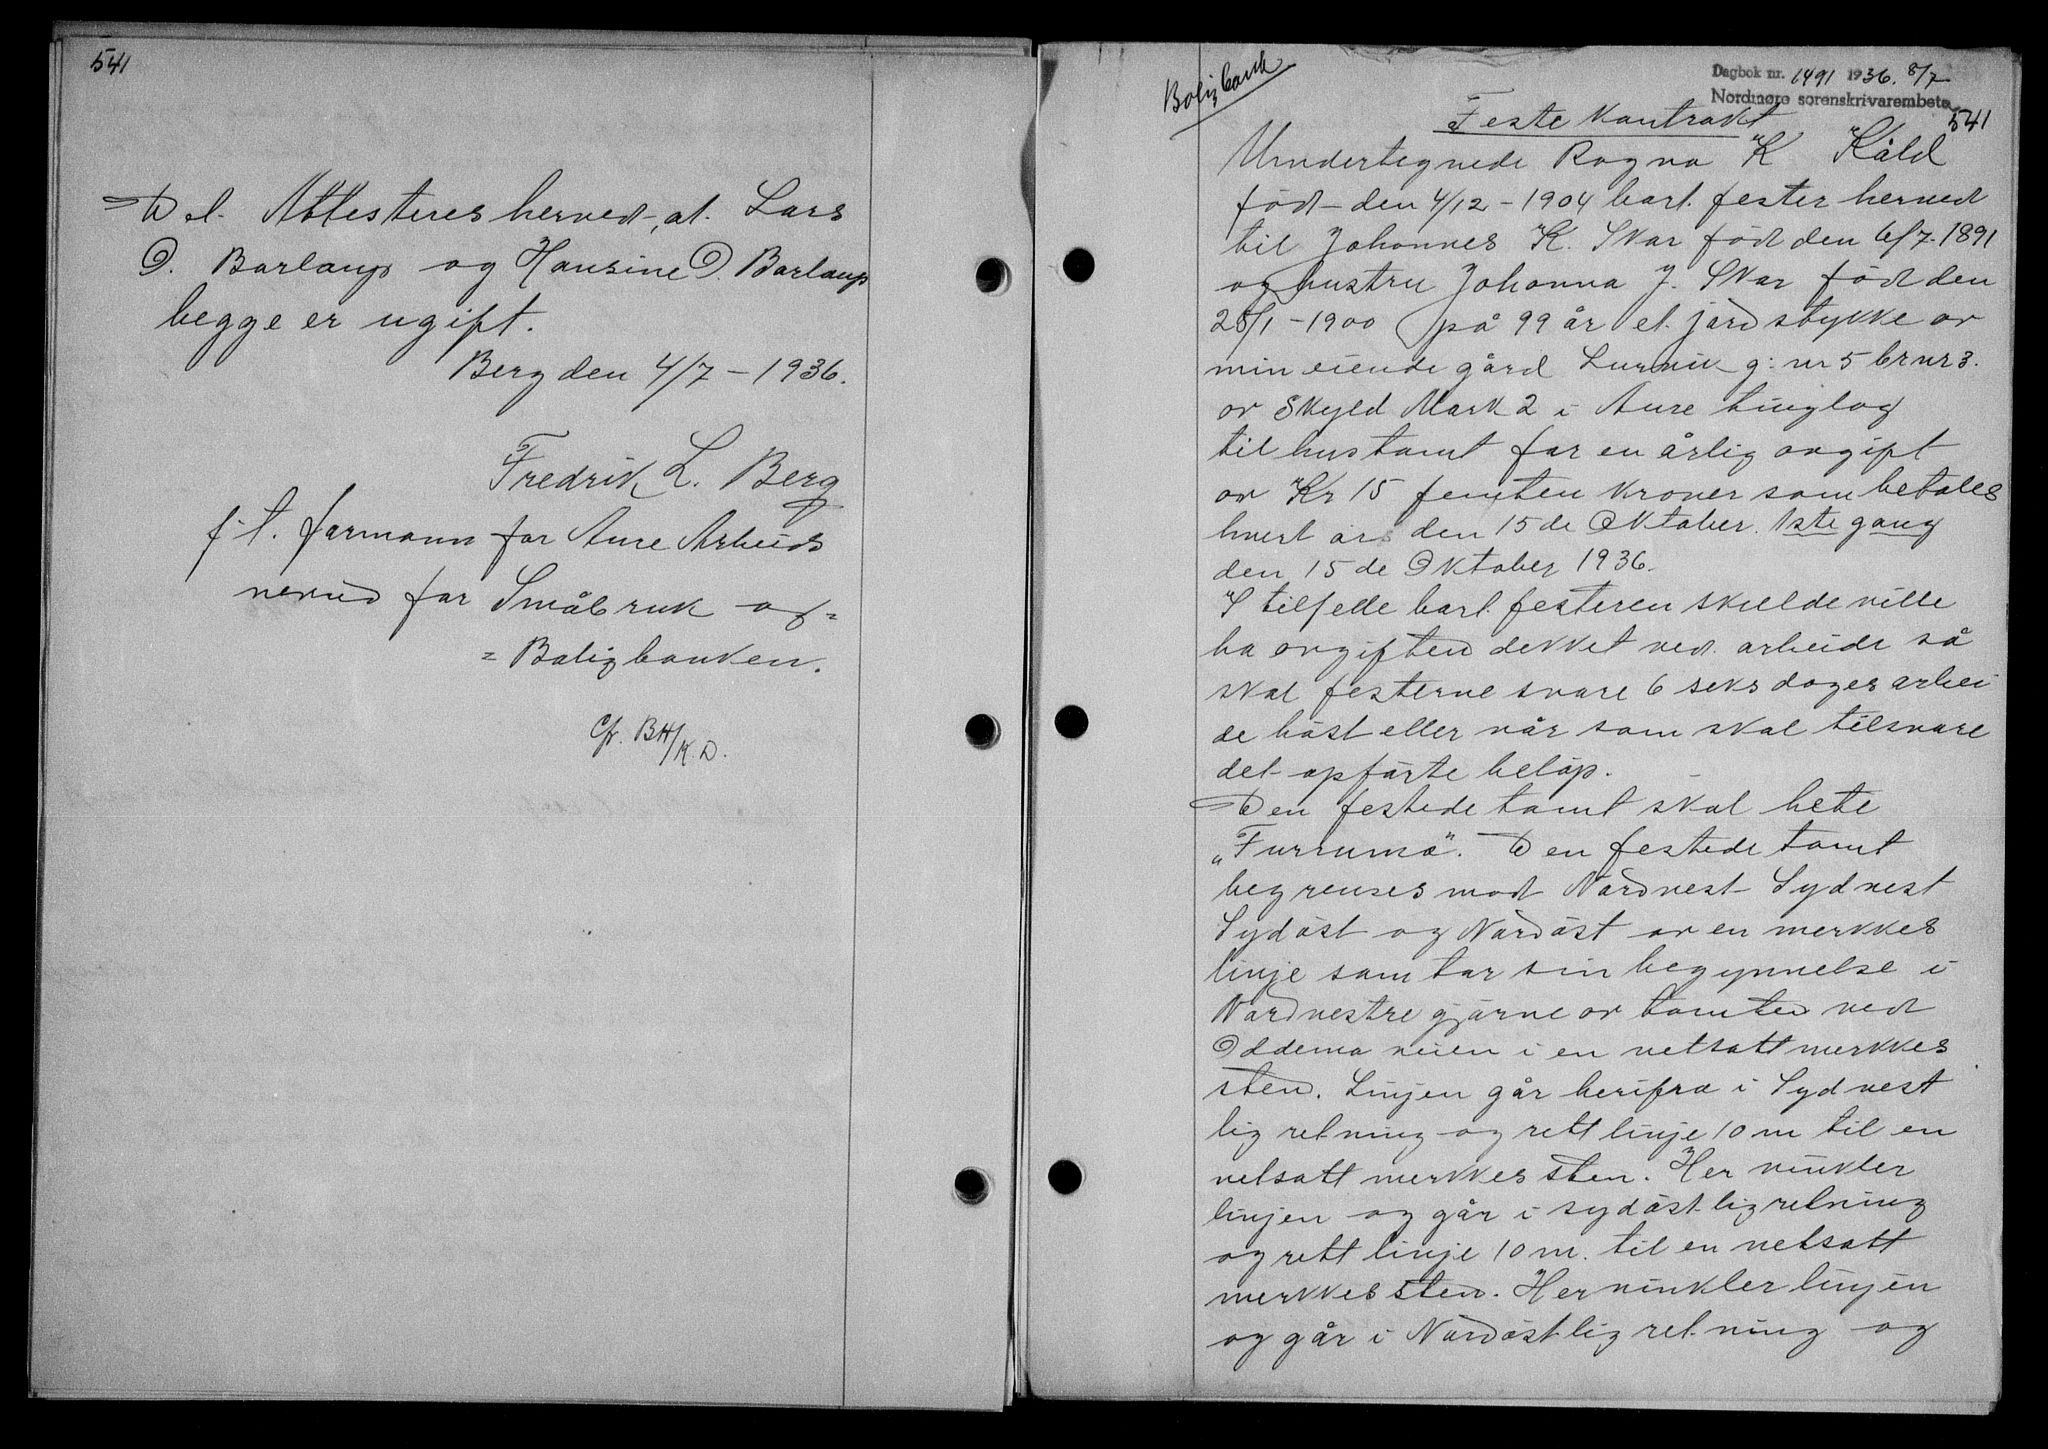 541
Det Attesteres herved, at Lars
O. Barlaup og Hansine O. Barlaup
begge er ugift.
Berg den 4/7 – 1936.
Fredrik L. Berg
f. t. formann for Aure Arbeids
nevnd for Småbruk og =
= Boligbanken.
Cfr. BH/K.D.
Boligbank
Dagbok nr. 1491 1936. 8/7
Nordmøre sorenskrivarembete
541
Feste Kontrakt
Undertegnede Ragna K Kåld
född den 4/12 – 1904 bort fester herved
til Johannes K. Skar född den 6/7 1891
og hustru Johanna J. Skar född den
28/1 – 1900 på 99 år et jordstykke av
min eiende gård Lurvik g: nr 5 br nr 3.
av Skyld Mark 2 i Aure tinglag
til hustomt for en årlig avgift
av Kr 15 femten kroner som betales
hvert års den 15 de Oktober. 1ste gang
den 15 de Oktober 1936.
I tilfelle bort festeren skulde ville
ha avgiften dekket ved arbeide så
skal festerne svare 6 seks dager arbei
de höst eller vår som skal tilsvare
det opförte belöp.
Den festede tomt skal hete
„Furrumo". Den festede tomt
begrenses mod Nordvest Sydvest
Sydöst og Nordöst av en merkkes
linje som tar sin begynnelse i
Nordvestre hjörne av tomten ved
Oddema veien i en netsatt merkkes
sten. Linjen går herifra i Sydvest
lig retning og rett linje 10 m til en
netsatt merkkes sten. Her vinkler
linjen og går i sydöstlig retning
og rett linje 10 m. til en netsatt
merkkes sten. Her vinkler linjen
og går i Nordöstlig retning og